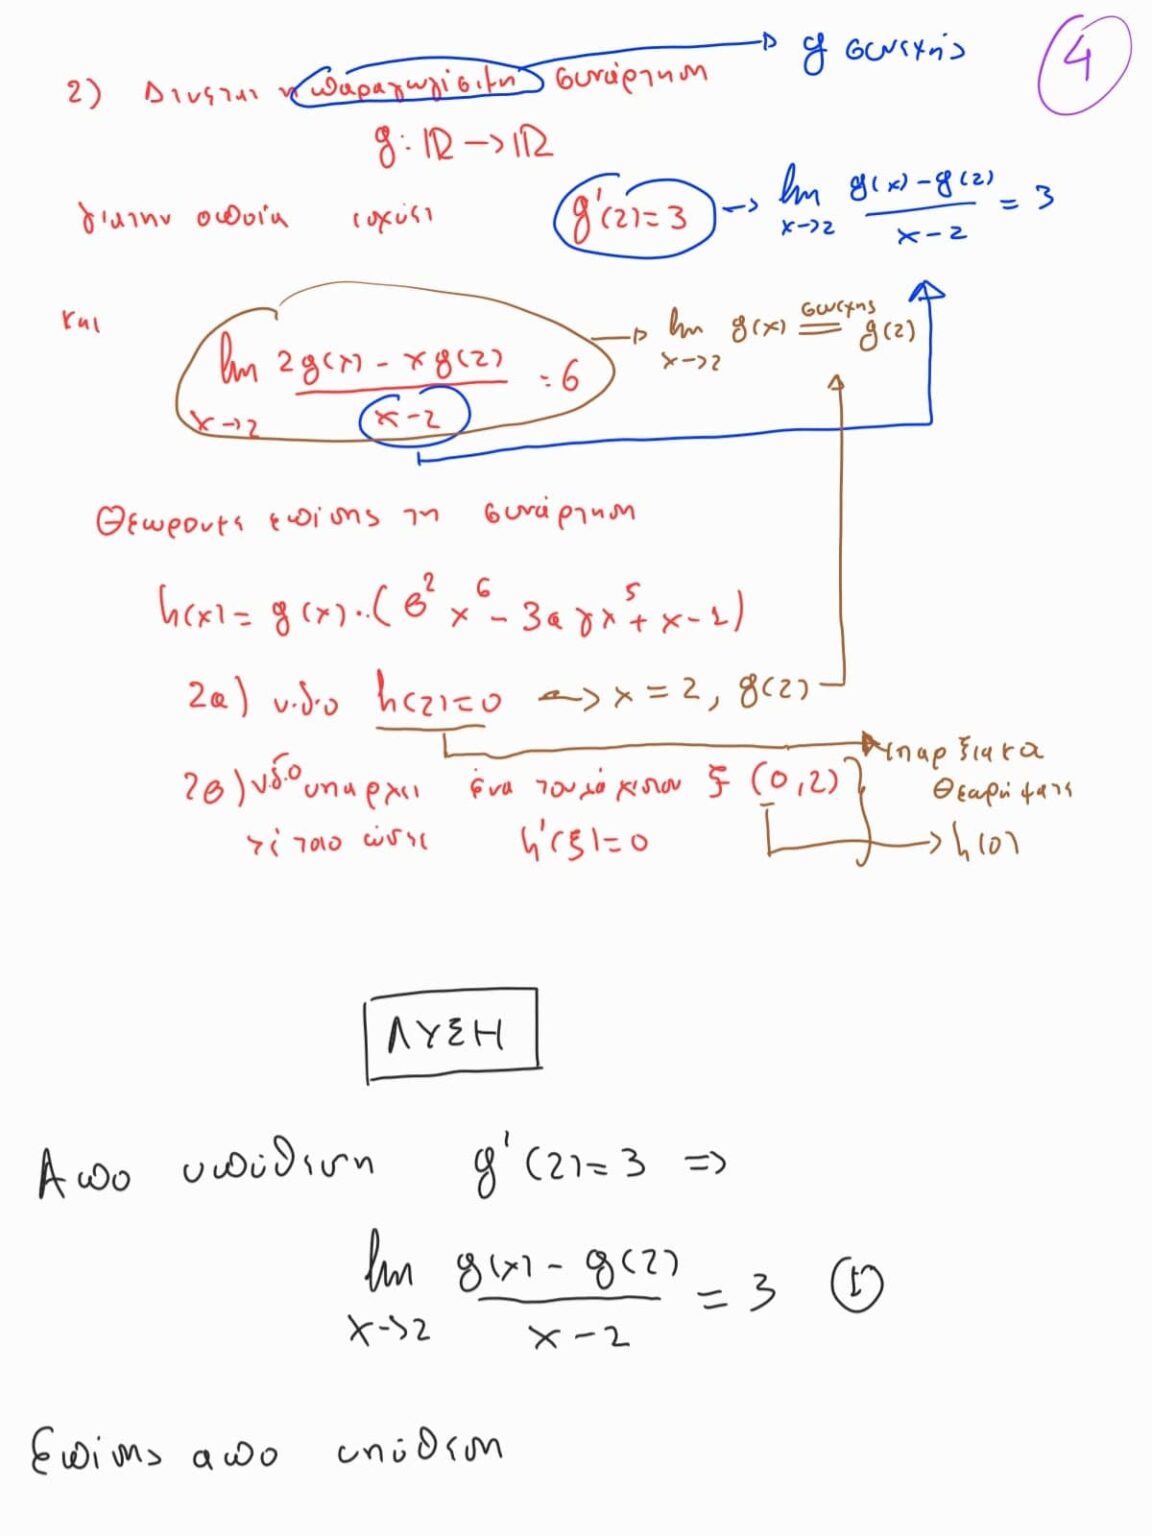 ④
2) Δίνεται η παραγωγίσιμη συνάρτηση → g συνεχής
g: ℝ → ℝ
για την οποία ισχύει g'(2)=3 → lim x→2 (g(x)-g(2))/(x-2) = 3
και lim x→2 (2g(x) - xg(2))/(x-2) = 6 → lim x→2 g(x) συνεχης = g(2)
Θεωρουμε επίσης τη συνάρτηση
h(x) = g(x)·(β²x⁶ - 3αγx⁵ + x - 1)
2α) ν.δ.ο h(2)=0 → x = 2, g(2)
υπαρξιακα
2β) νδο υπαρχει ένα τουλάχιστον ξ (0,2) Θεωρήματα
τέτοιο ώστε h'(ξ)=0 → h(0)
ΛΥΣΗ
Απο υπόθεση g'(2)=3 =>
lim x→2 (g(x) - g(2))/(x-2) = 3 ①
Επίσης απο υπόθεση